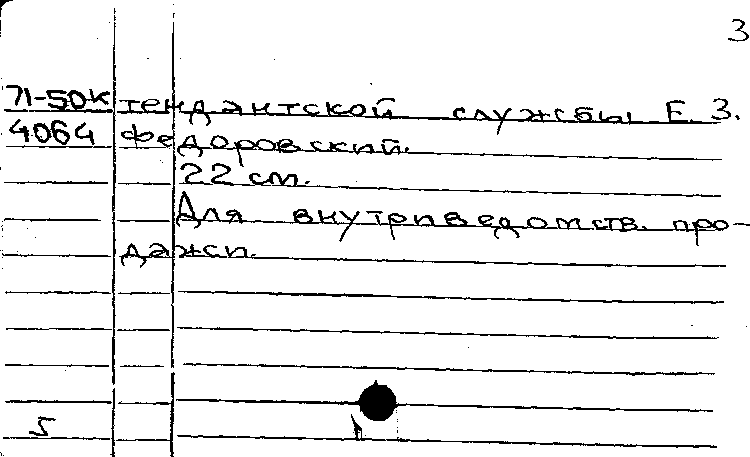 3
71-50к тендантской службы Е. З.
4064 Федоровский.
22 см.
Для внутриведомств. про-
дажи.
5